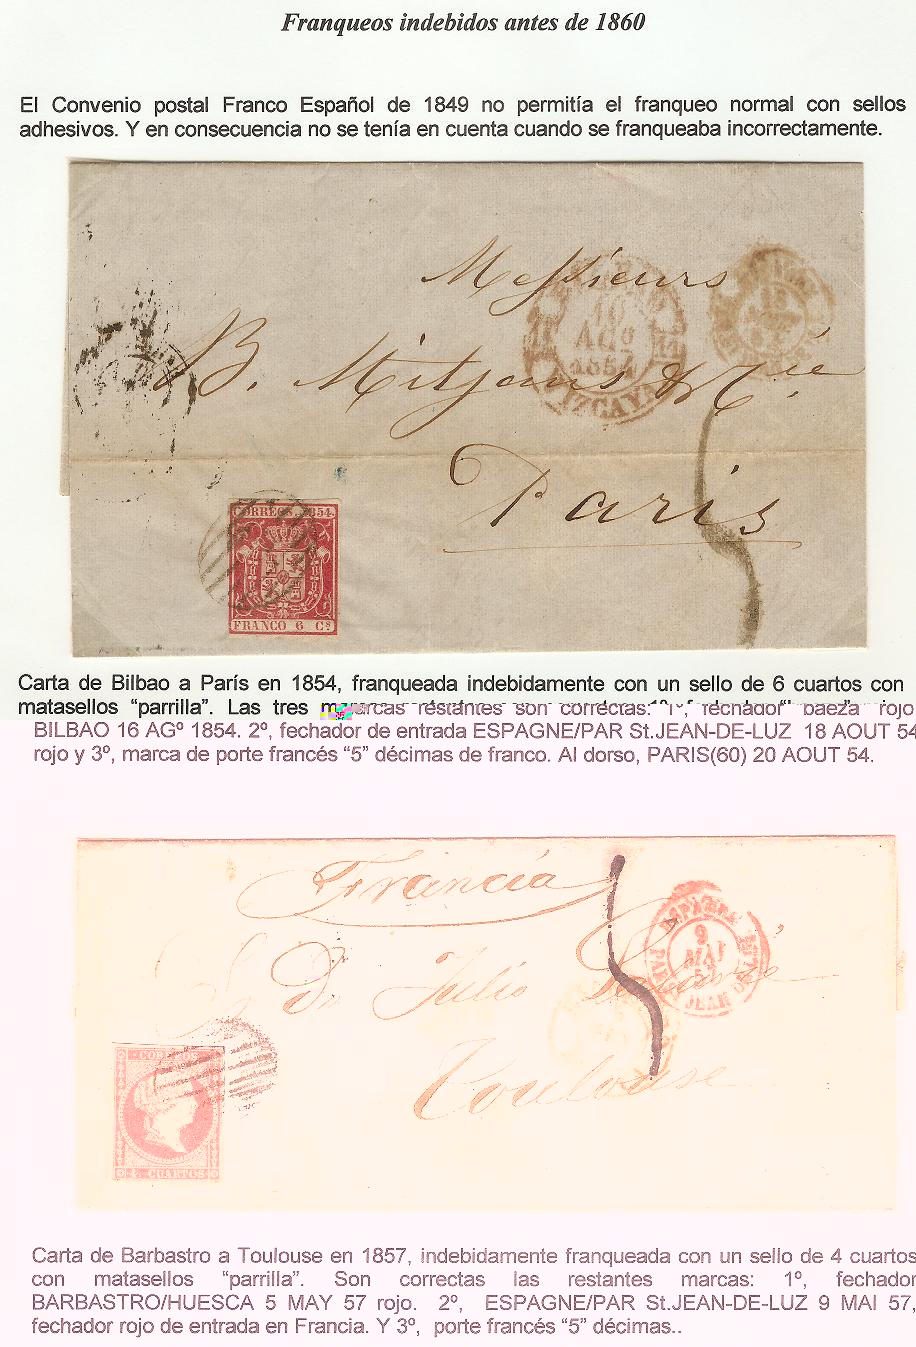 Franqueos indebidos antes de 1860
El Convenio postal Franco Español de 1849 no permitía el franqueo normal con sellos
adhesivos. Y en consecuencia no se tenía en cuenta cuando se franqueaba incorrectamente.
Messieurs
16
AGº
1854
VIZCAYA
B. Mitjans & Cie
Paris
CORREOS. 1854.
FRANCO 6 Cs
5
Carta de Bilbao a París en 1854, franqueada indebidamente con un sello de 6 cuartos con
matasellos “parrilla”. Las tres marcas restantes son correctas: 1º, fechador baeza rojo
BILBAO 16 AGº 1854. 2º, fechador de entrada ESPAGNE/PAR St.JEAN-DE-LUZ 18 AOUT 54
rojo y 3º, marca de porte francés “5” décimas de franco. Al dorso, PARIS(60) 20 AOUT 54.
Francia
5
9
MAI
57
S. Dn Julio
Toulouse
CORREOS
4 CUARTOS
Carta de Barbastro a Toulouse en 1857, indebidamente franqueada con un sello de 4 cuartos
con matasellos “parrilla”. Son correctas las restantes marcas: 1º, fechador
BARBASTRO/HUESCA 5 MAY 57 rojo. 2º, ESPAGNE/PAR St.JEAN-DE-LUZ 9 MAI 57,
fechador rojo de entrada en Francia. Y 3º, porte francés “5” décimas..